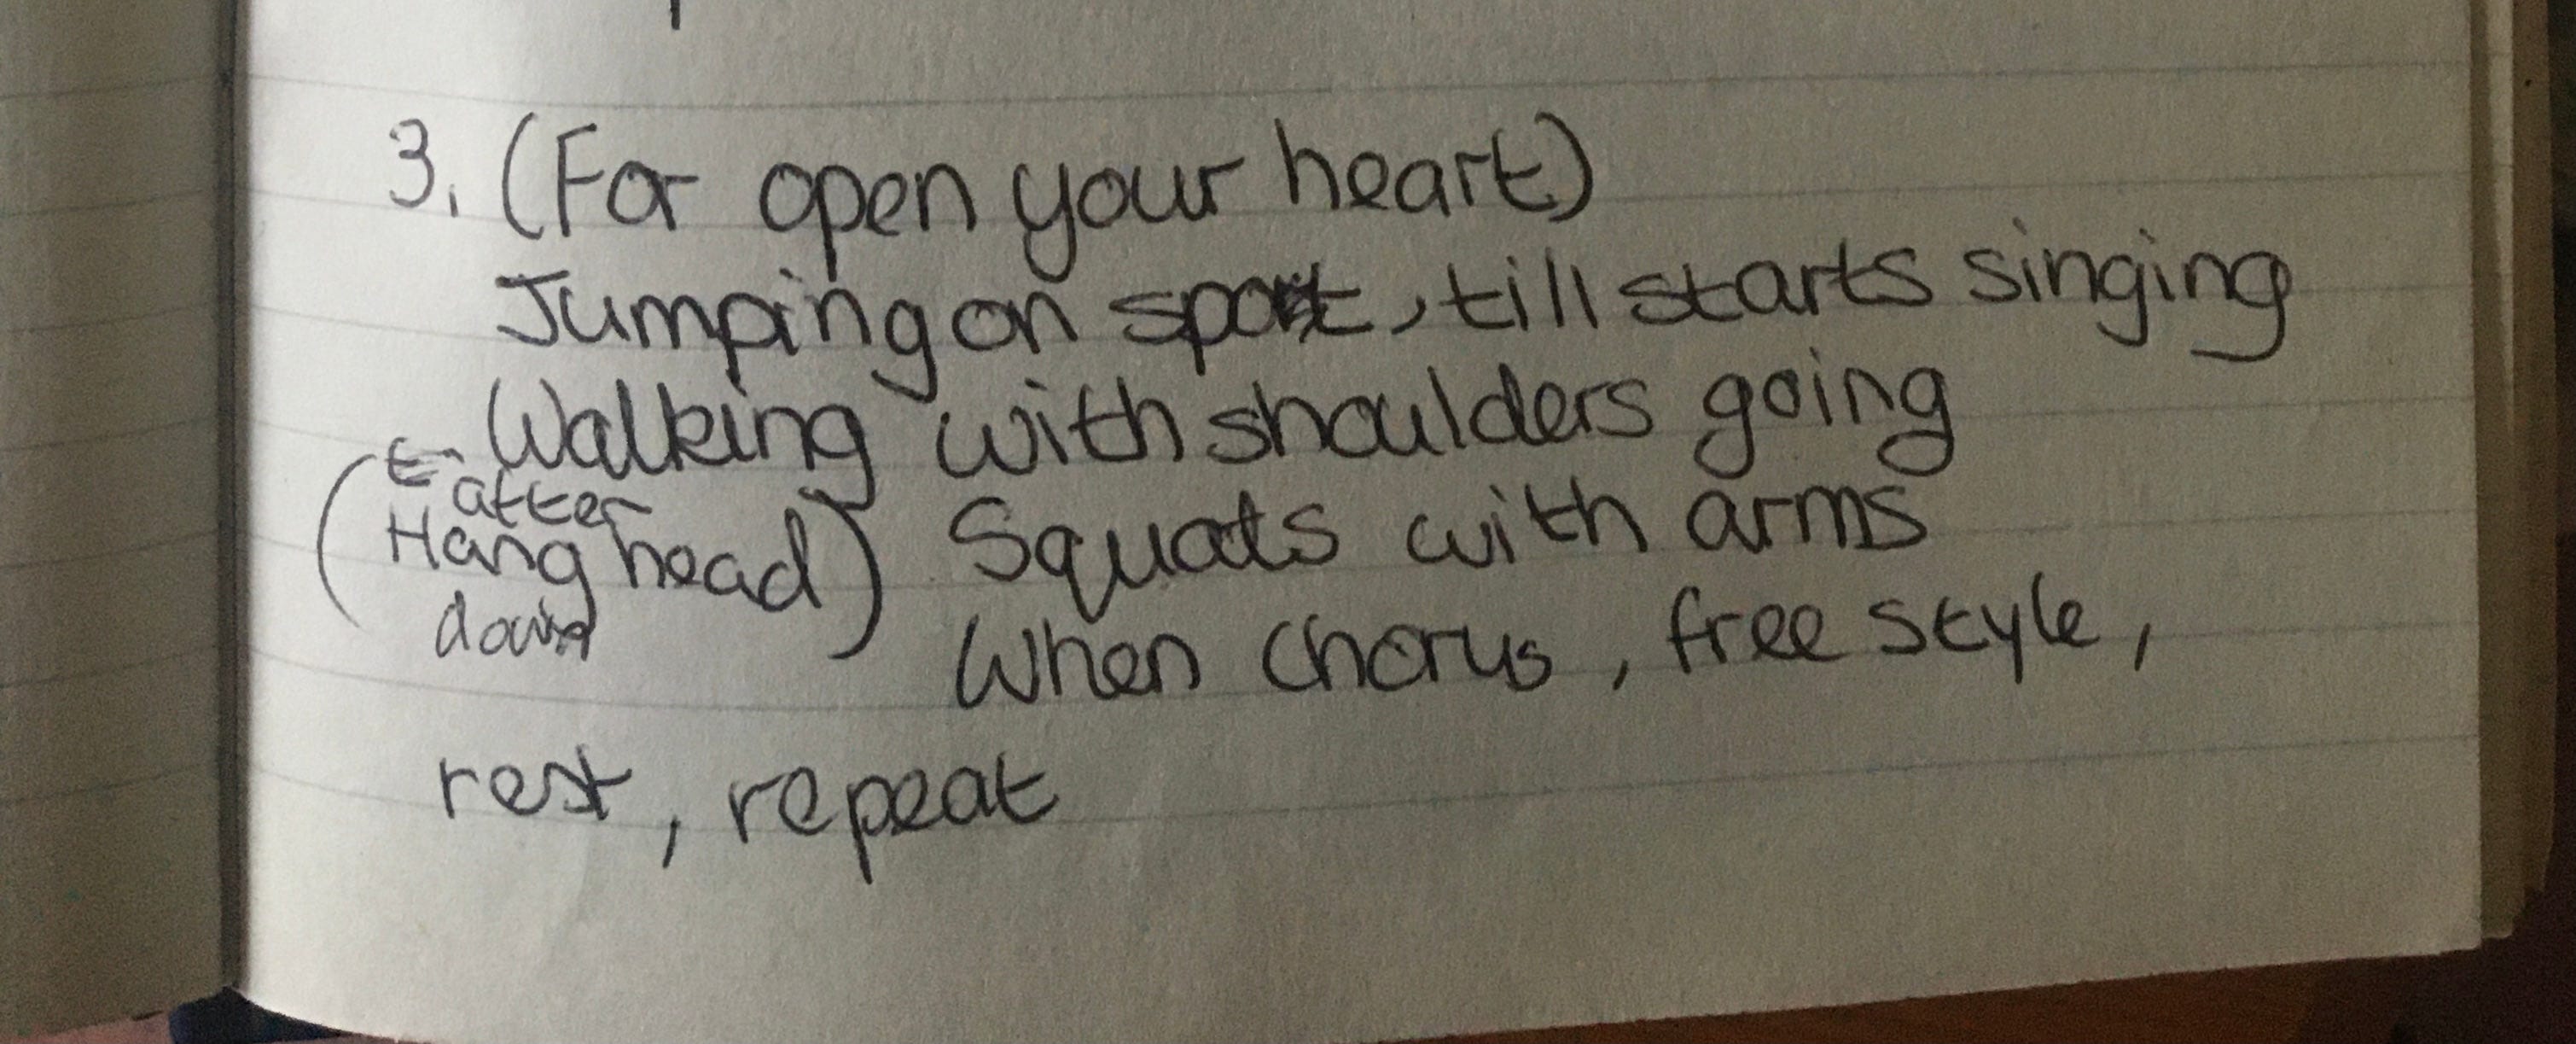 3. (For open your heart)
Jumping on spot, till starts singing
Walking with shoulders going
(after
Hang head)
down
Squats with arms
When chorus, free style,
rest, repeat